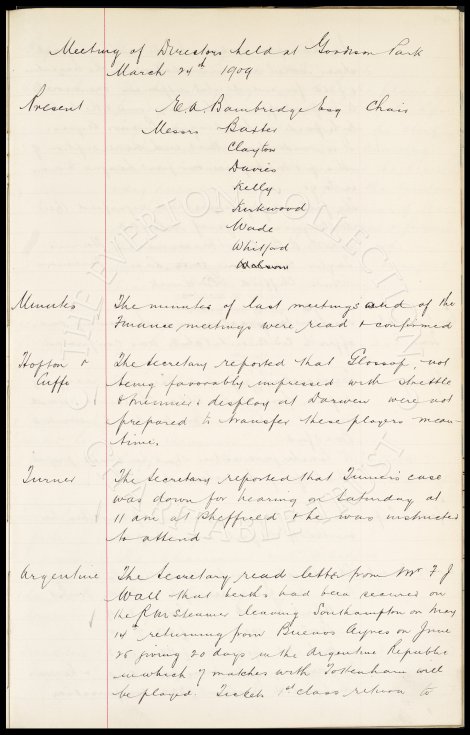 Meeting of Directors held at Goodison Park
March 24th 1909
Present E.A. Bainbridge Esq Chair
Messrs Baxter
Clayton
Davies
Kelly
Kirkwood
Wade
Whitford
Minutes The minutes of last meetings and of the
Finance meetings were read & confirmed
Hopton & The Secretary reported that Glossop, not
Cuffe being favorably impressed with Strettle
& display at Darwen were not
prepared to transfer these players mean-
time.
Turner The Secretary reported that Turner's case
was down for hearing on Saturday at
11 am at Sheffield & he was instructed
to attend
Argentine The Secretary read letter from Mr F J
Wall that berths had been secured on
the RM Steamer leaving Southampton on May
14th returning from Buenos Ayres on June
26 giving 20 days in the Argentine Republic
in which 7 matches with Tottenham will
be played. Tickets 1st class return to
THE EVERTON COLLECTION